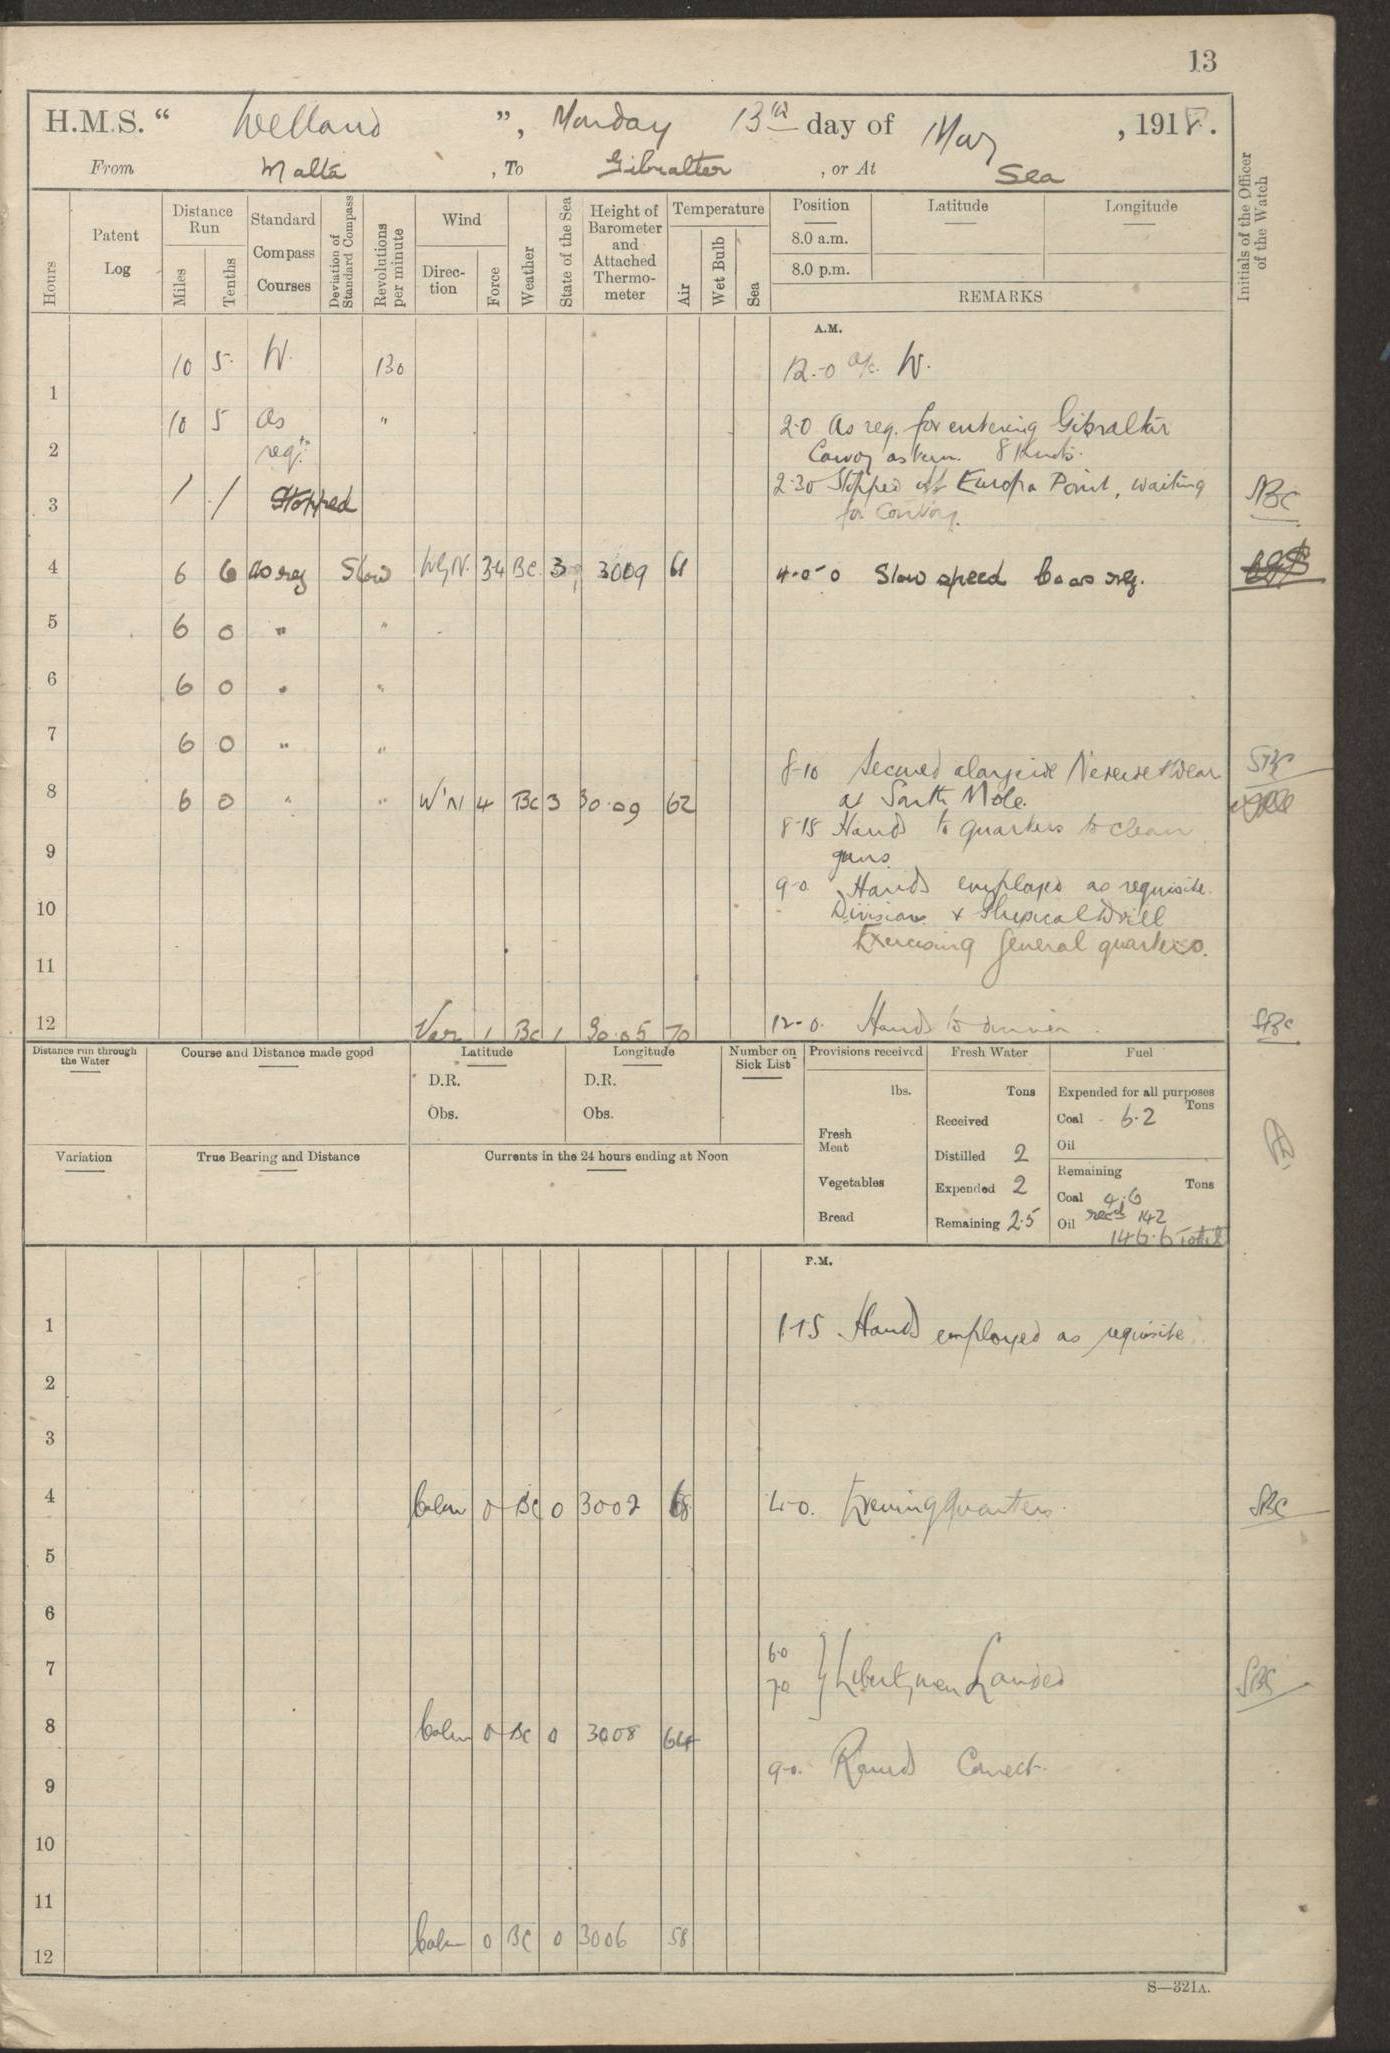 13
H.M.S. “ Welland ”, Monday 13th day of May , 1918.
From Malta , To Gibralter , or At Sea
Hours
Patent Log
Distance Run
Miles
Tenths
Standard Compass Courses
Deviation of Standard Compass
Revolutions per minute
Wind
Direction
Force
Weather
State of the Sea
Height of Barometer and Attached Thermometer
Temperature
Air
Wet Bulb
Sea
Position
8.0 a.m.
8.0 p.m.
Latitude
Longitude
REMARKS
Initials of the Officer of the Watch
A.M.
1 10 5 W. 130 12.-0 a/c. W.
2 10 5 as req. " 2-0 As req. for entering Gibraltar
Convoy astern. 8 Knots.
3 / / Stopped 2.30 Stopped off Europa Point, waiting
for Convoy.
SBC
4 6 6 as req Slow WbyN. 3-4 BC 3 3009 61 4-0-0 Slow speed Co as req.
5 6 0 " "
6 6 0 " "
7 6 0 " "
8-10 Secured alongside Nereide & Wear
SBC
8 6 0 " " W'N 4 BC 3 30.09 62 at South Mole.
8-15 Hands to quarters to clean
9 guns.
9-0 Hands employed as requisite.
10 Divisions & Physical Drill
Exercising General quarters.
11
12 Var 1 BC 1 30.05 70 12-0. Hands to dinner.
SBC
Distance run through the Water
Course and Distance made good
Latitude
D.R.
Obs.
Longitude
D.R.
Obs.
Number on Sick List
Provisions received
lbs.
Fresh Meat
Vegetables
Bread
Fresh Water
Tons
Received
Distilled 2
Expended 2
Remaining 2.5
Fuel
Expended for all purposes
Tons
Coal 6.2
Oil
Remaining
Tons
Coal 4.6
Oil recd 142
146.6 Total
Variation
True Bearing and Distance
Currents in the 24 hours ending at Noon
P.M.
1 1-15 Hands employed as requisite
2
3
4 Calm 0 BC 0 3002 68 4-0. Evening Quarters.
SBC
5
6
6-0
7 7-0 } Libertymen Landed
SBC
8 Calm 0 BC 0 3008 64
9-0. Rounds Correct.
9
10
11
12 Calm 0 BC 0 3006 58
S—321A.